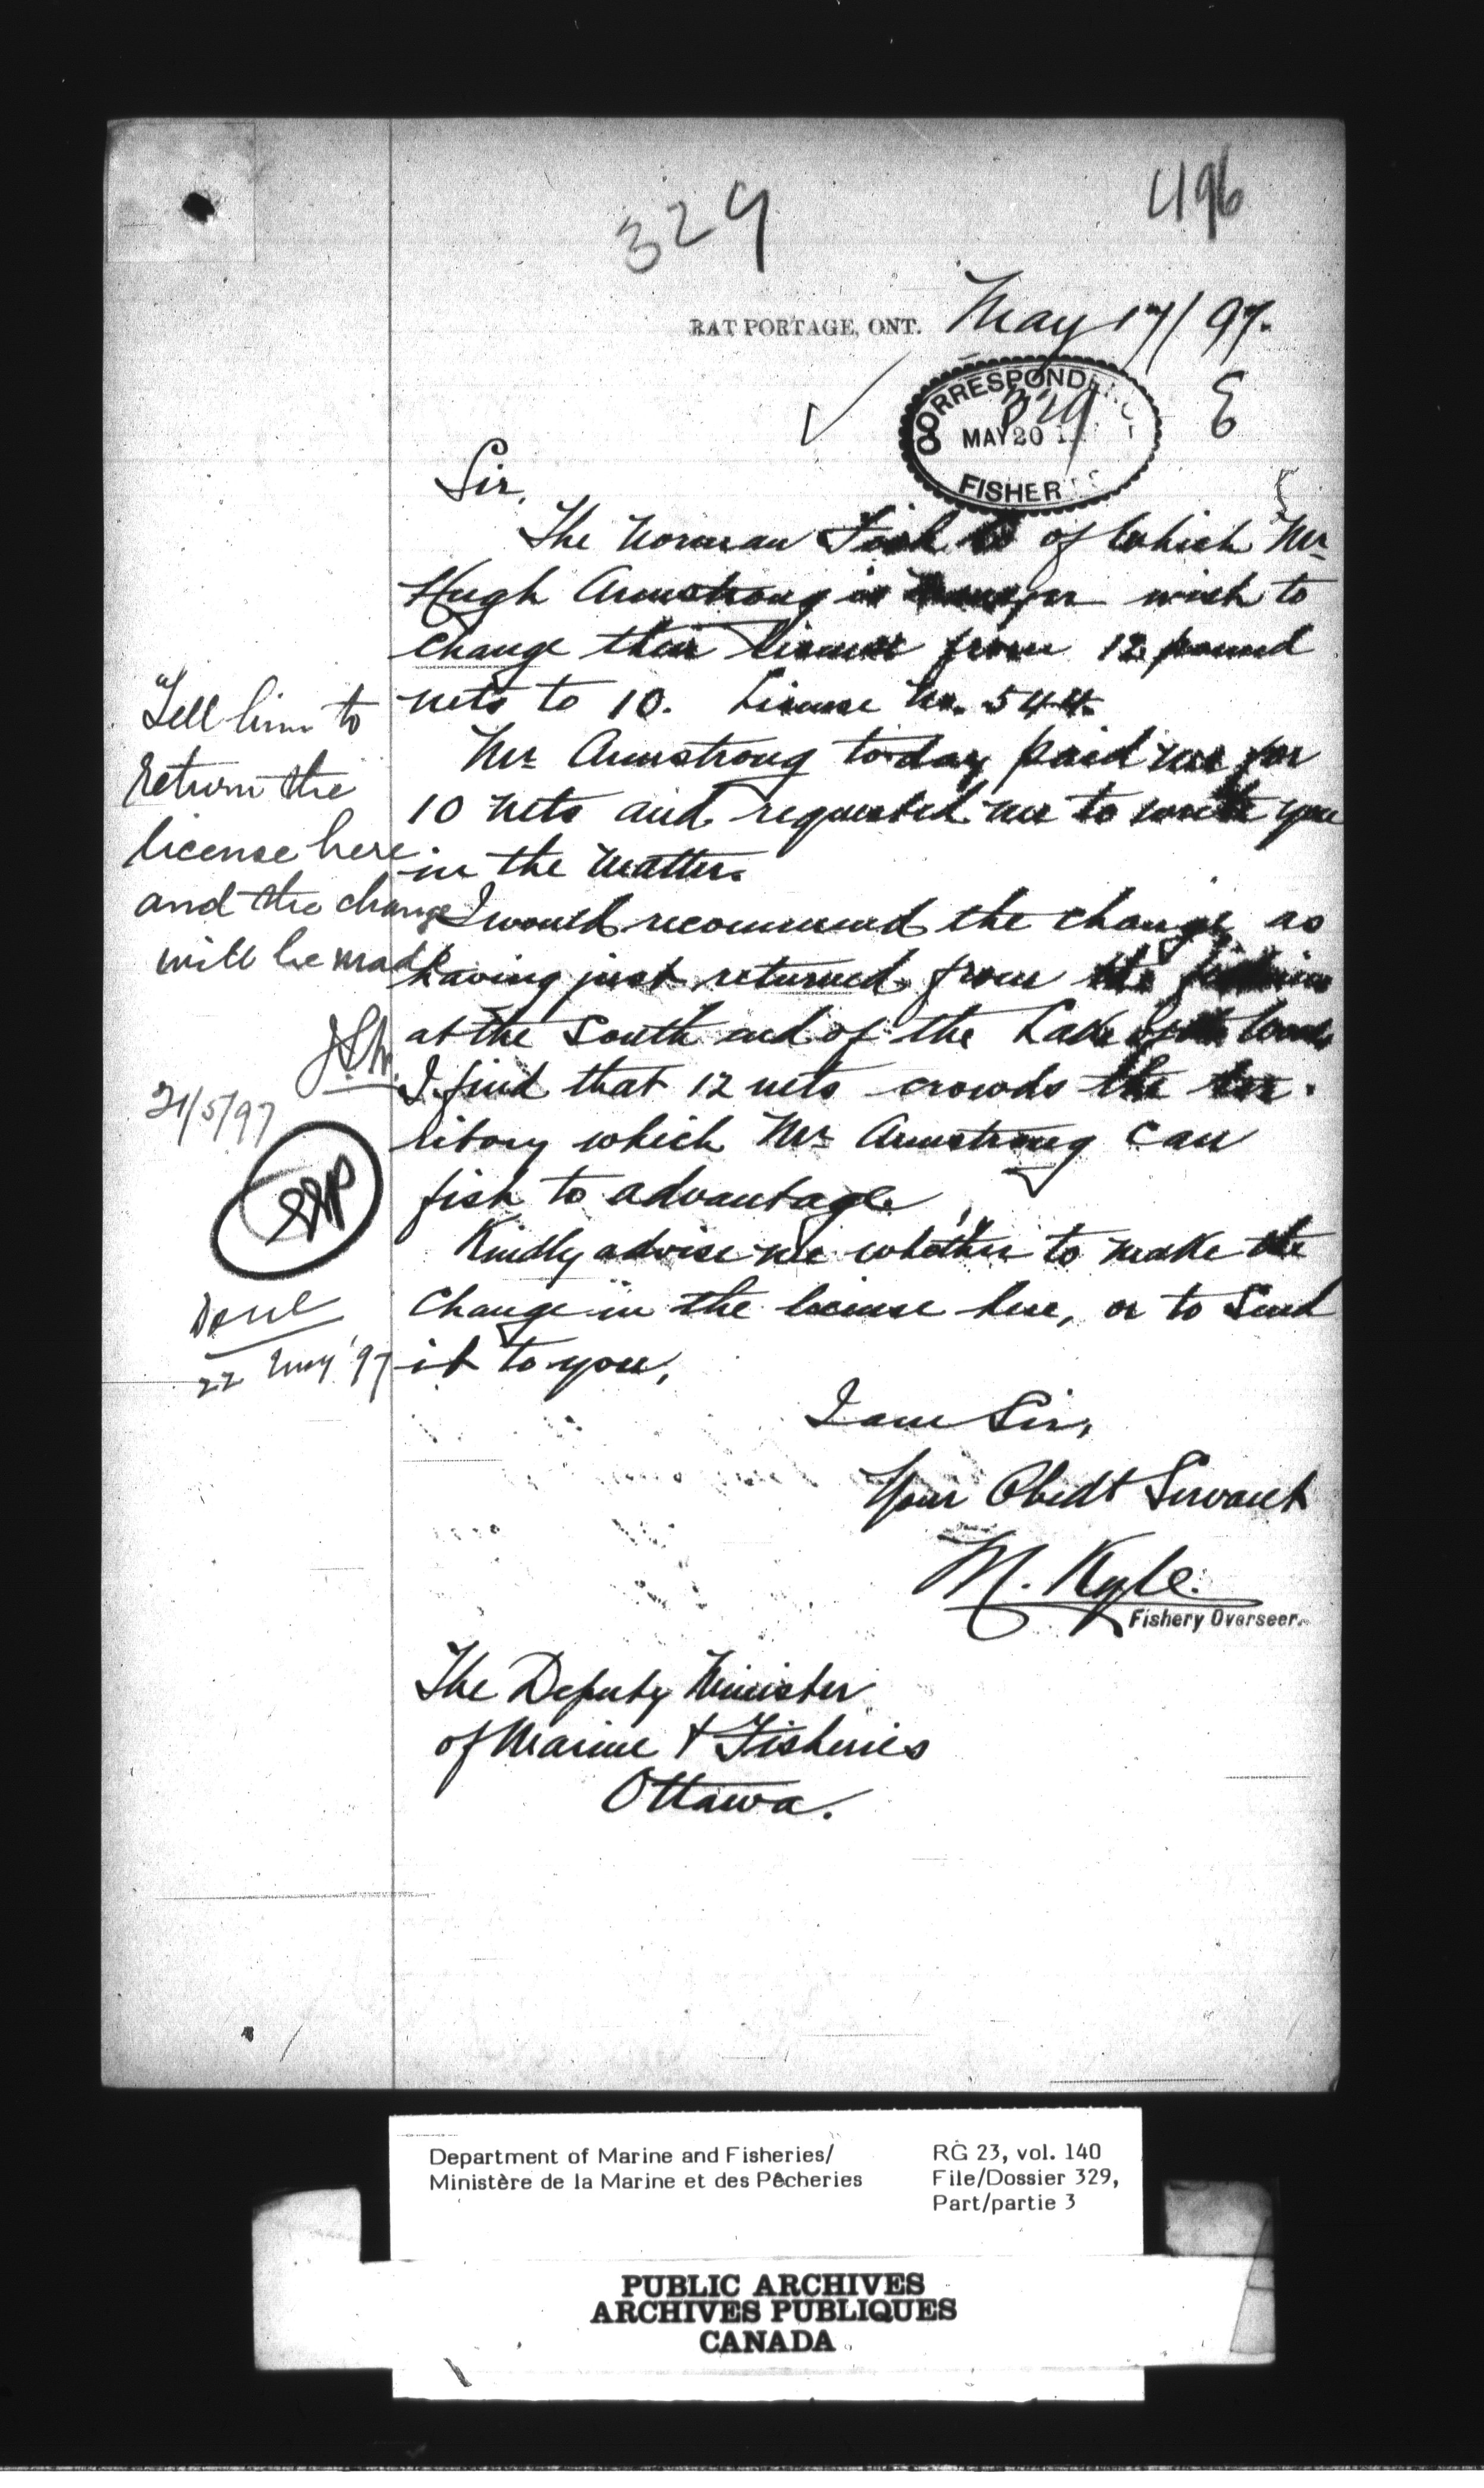 329
496
RAT PORTAGE, ONT. May 17/97.
CORRESPOND
329
MAY 20
FISHER
E
Sir,
The Norman Fish Co of which Mr
Hugh Armstrong is Manager wish to
change their license from 12 pound
nets to 10. License No. 544.
Mr Armstrong today paid me for
10 nets and requested me to write you
in the matter.
I would recommend the change as
having just returned from the
at the South end of the Lake of the Woods
I find that 12 nets crowds the ter-
ritory which Mr Armstrong can
fish to advantage
Kindly advise me whether to make the
change in the license here, or to send
it to you,
I am Sir,
Your Obedt Servant
M. Kyle.
Fishery Overseer.
The Deputy Minister
of Marine & Fisheries
Ottawa.
"Tell him to
return the
license here
and the change
will be made
21/5/97
Done
22 May '97
Department of Marine and Fisheries/
Ministère de la Marine et des Pêcheries
RG 23, vol. 140
File/Dossier 329,
Part/partie 3
PUBLIC ARCHIVES
ARCHIVES PUBLIQUES
CANADA